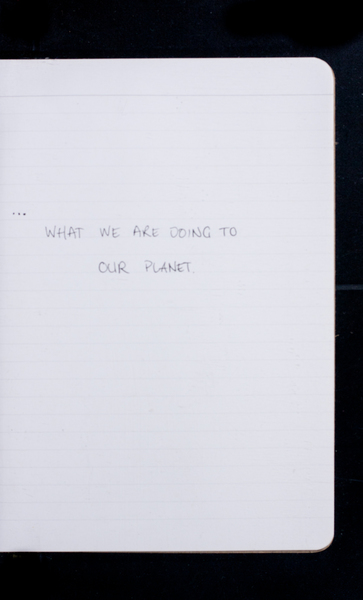 ...
WHAT WE ARE DOING TO
OUR PLANET.